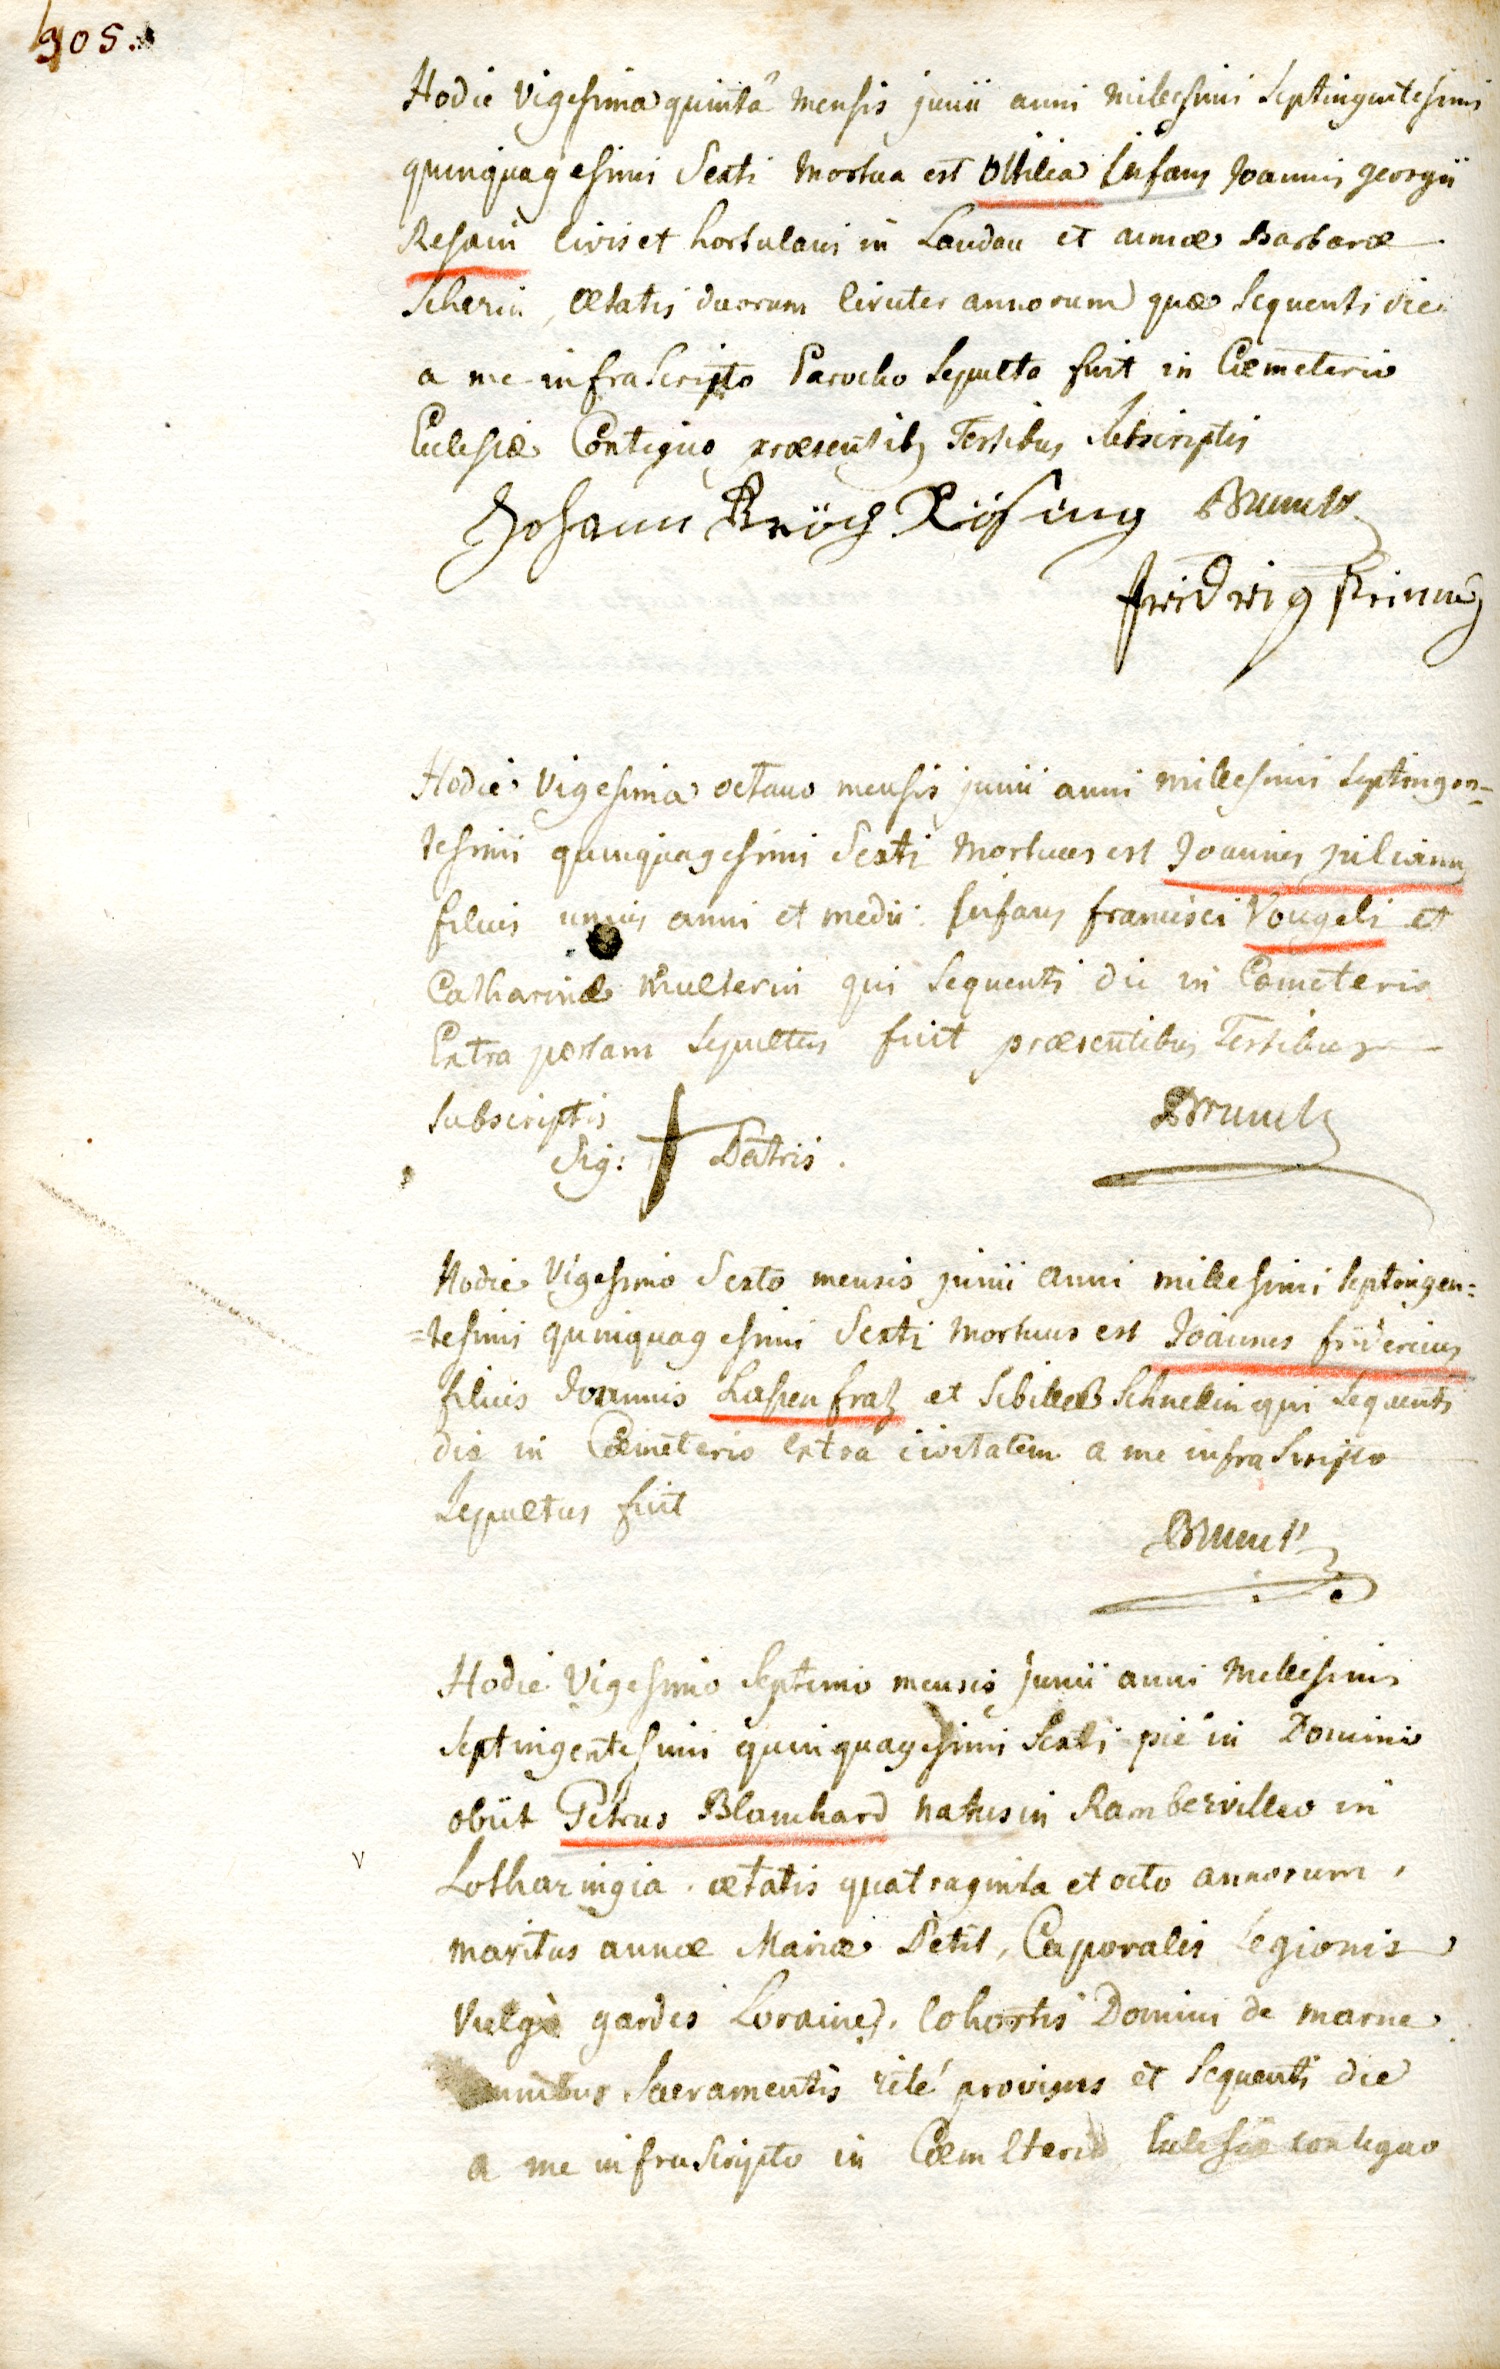 905.
Hodie Vigesima quinta mensis junii anni millesimi Septingentesimi
quinquagesimi Sexti mortua est Ottilia infans Joannis georgii
civis et hortulani in Landau et annæ Barbaræ
Scherin, ætatis duorum circiter annorum quæ Sequenti die
a me infra Scripto Parocho Sepulta fuit in Cœmeterio
Eclesiæ Contiguo præsentib9 Testibus Subscriptis
Johann
Hodie Vigesima octava mensis junii anni millesimi Septingen=
tesimi quinquagesimi Sexti mortuus est Joannes
filius unius anni et medii infans francisci Vougeli et
Catharinæ qui Sequenti die in Cœmeterio
Extra portam Sepultus fuit præsentibus Testibus
Subscriptis
Sig: Patris.
Hodie Vigesimo Sexto mensis junii anni millesimi Septingen=
=tesimi quinquagesimi Sexti mortuus est Joannes fridericus
filius Joannis et Sibillæ Schnellin qui Sequenti
die in Cœmeterio Extra civitatem a me infra Scripto
Sepultus fuit
Hodie Vigesimo Septimo mensis Junii anni Millesimi
Septingentesimi quinquagesimi Sexti pie in Domino
obiit Petrus Blanchard natus in Ramberville in
Lotharingia. ætatis quatraginta et octo annorum,
maritus annæ Mariæ Petit, Caporalis Legionis
Vulgo gardes Loraine, Cohortis Domini de marne
omnibus Sacramentis rite provisus et Sequenti die
a me infra Scripto in Cœmeterio Eclesiæ contiguo